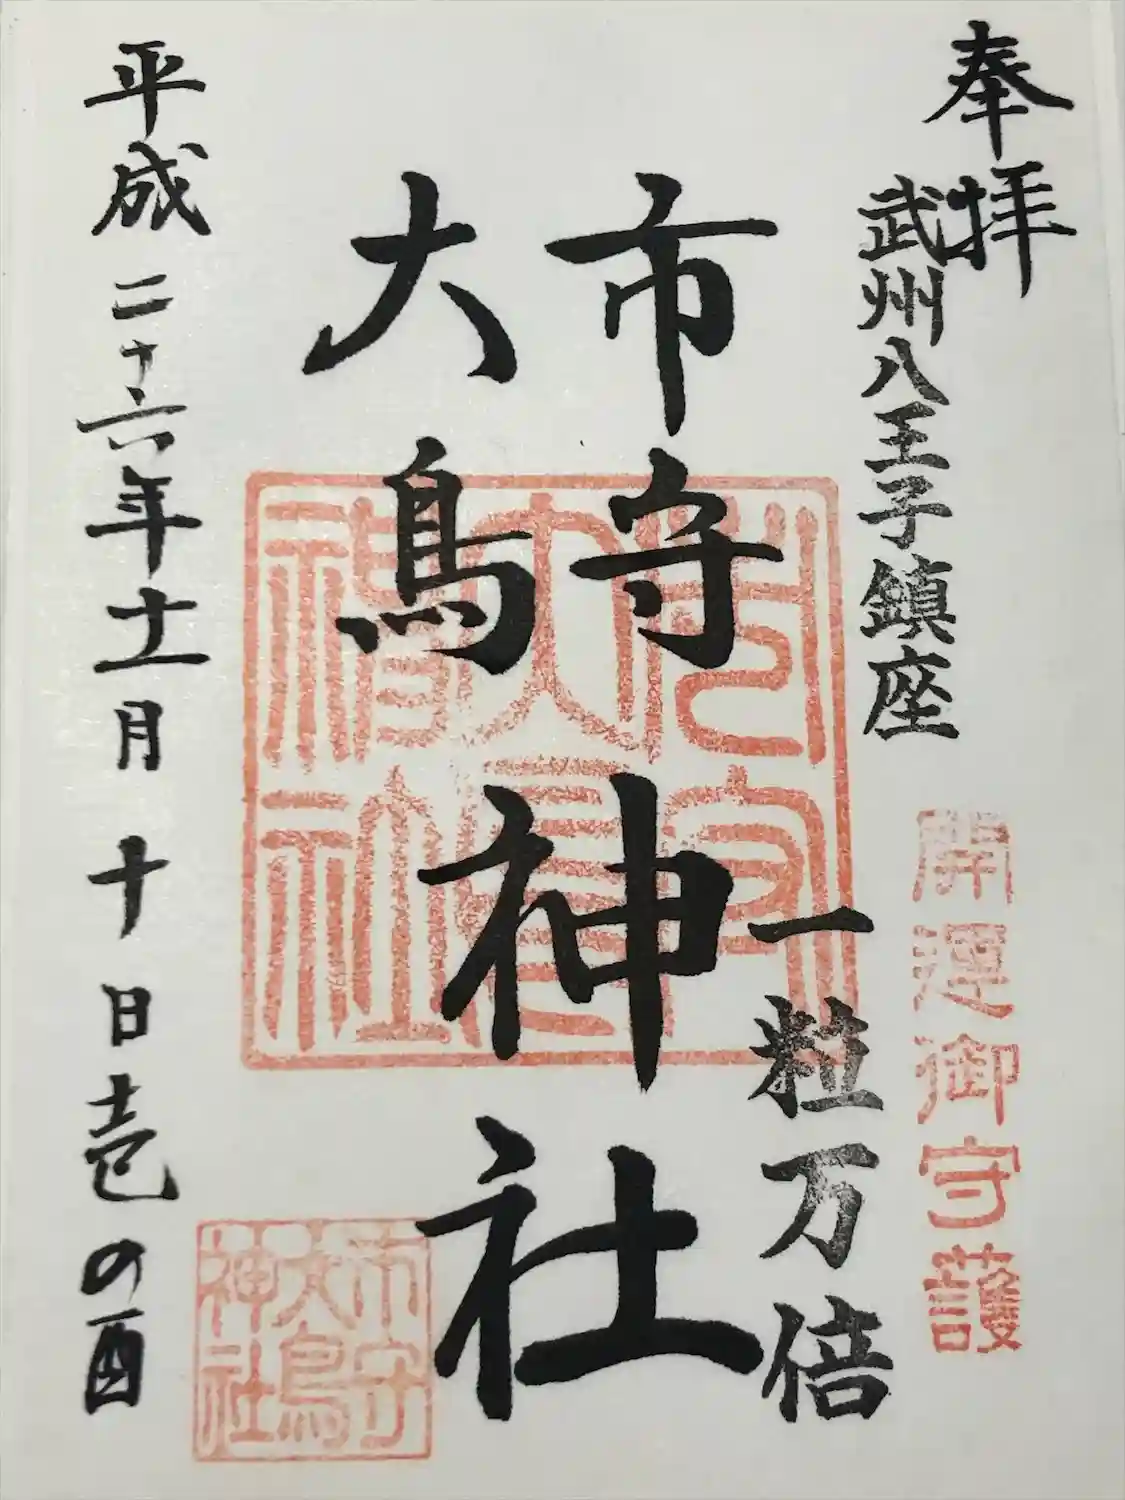 奉拝
武州八王子鎮座
開運御守護
一粒万倍
市守
大鳥
神社
市守
大鳥
神社
市守
大鳥
神社
平成二十六年十一月十日壱の酉